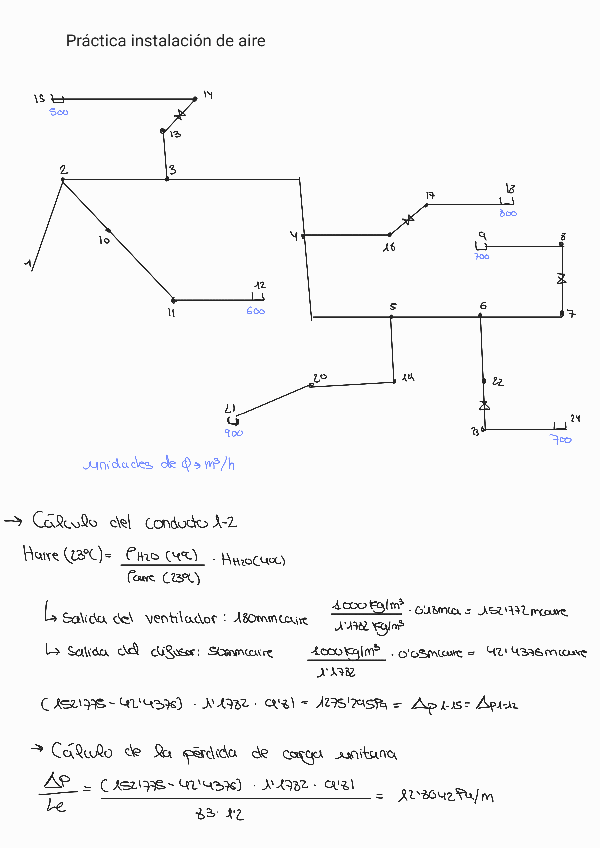 Práctica instalación de aire
15
14
500
13
2
3
17
18
800
4
16
9
8
700
10
1
12
11
600
5
6
7
20
19
22
21
900
23
24
700
unidades de Q → m³/h
→ Cálculo del conducto 1-2
Haire (23ºC) = ρH2O (4ºC) / ρaire (23ºC) · HH2O (4ºC)
↳ Salida del ventilador: 180mmcaire 1000 Kg/m³ / 1'1782 Kg/m³ · 0'18mca = 152'772 mcaire
↳ Salida del difusor: 50mmcaire 1000 Kg/m³ / 1'1782 · 0'05mcaire = 42'4376 mcaire
(152'775 - 42'4376) · 1'1782 · 9'81 = 1275'295Pa = Δp 1-15 = Δp 1-12
→ Cálculo de la pérdida de carga unitaria
Δp / Le = (152'775 - 42'4376) · 1'1782 · 9'81 / 83 · 1'2 = 12'8042 Pa/m